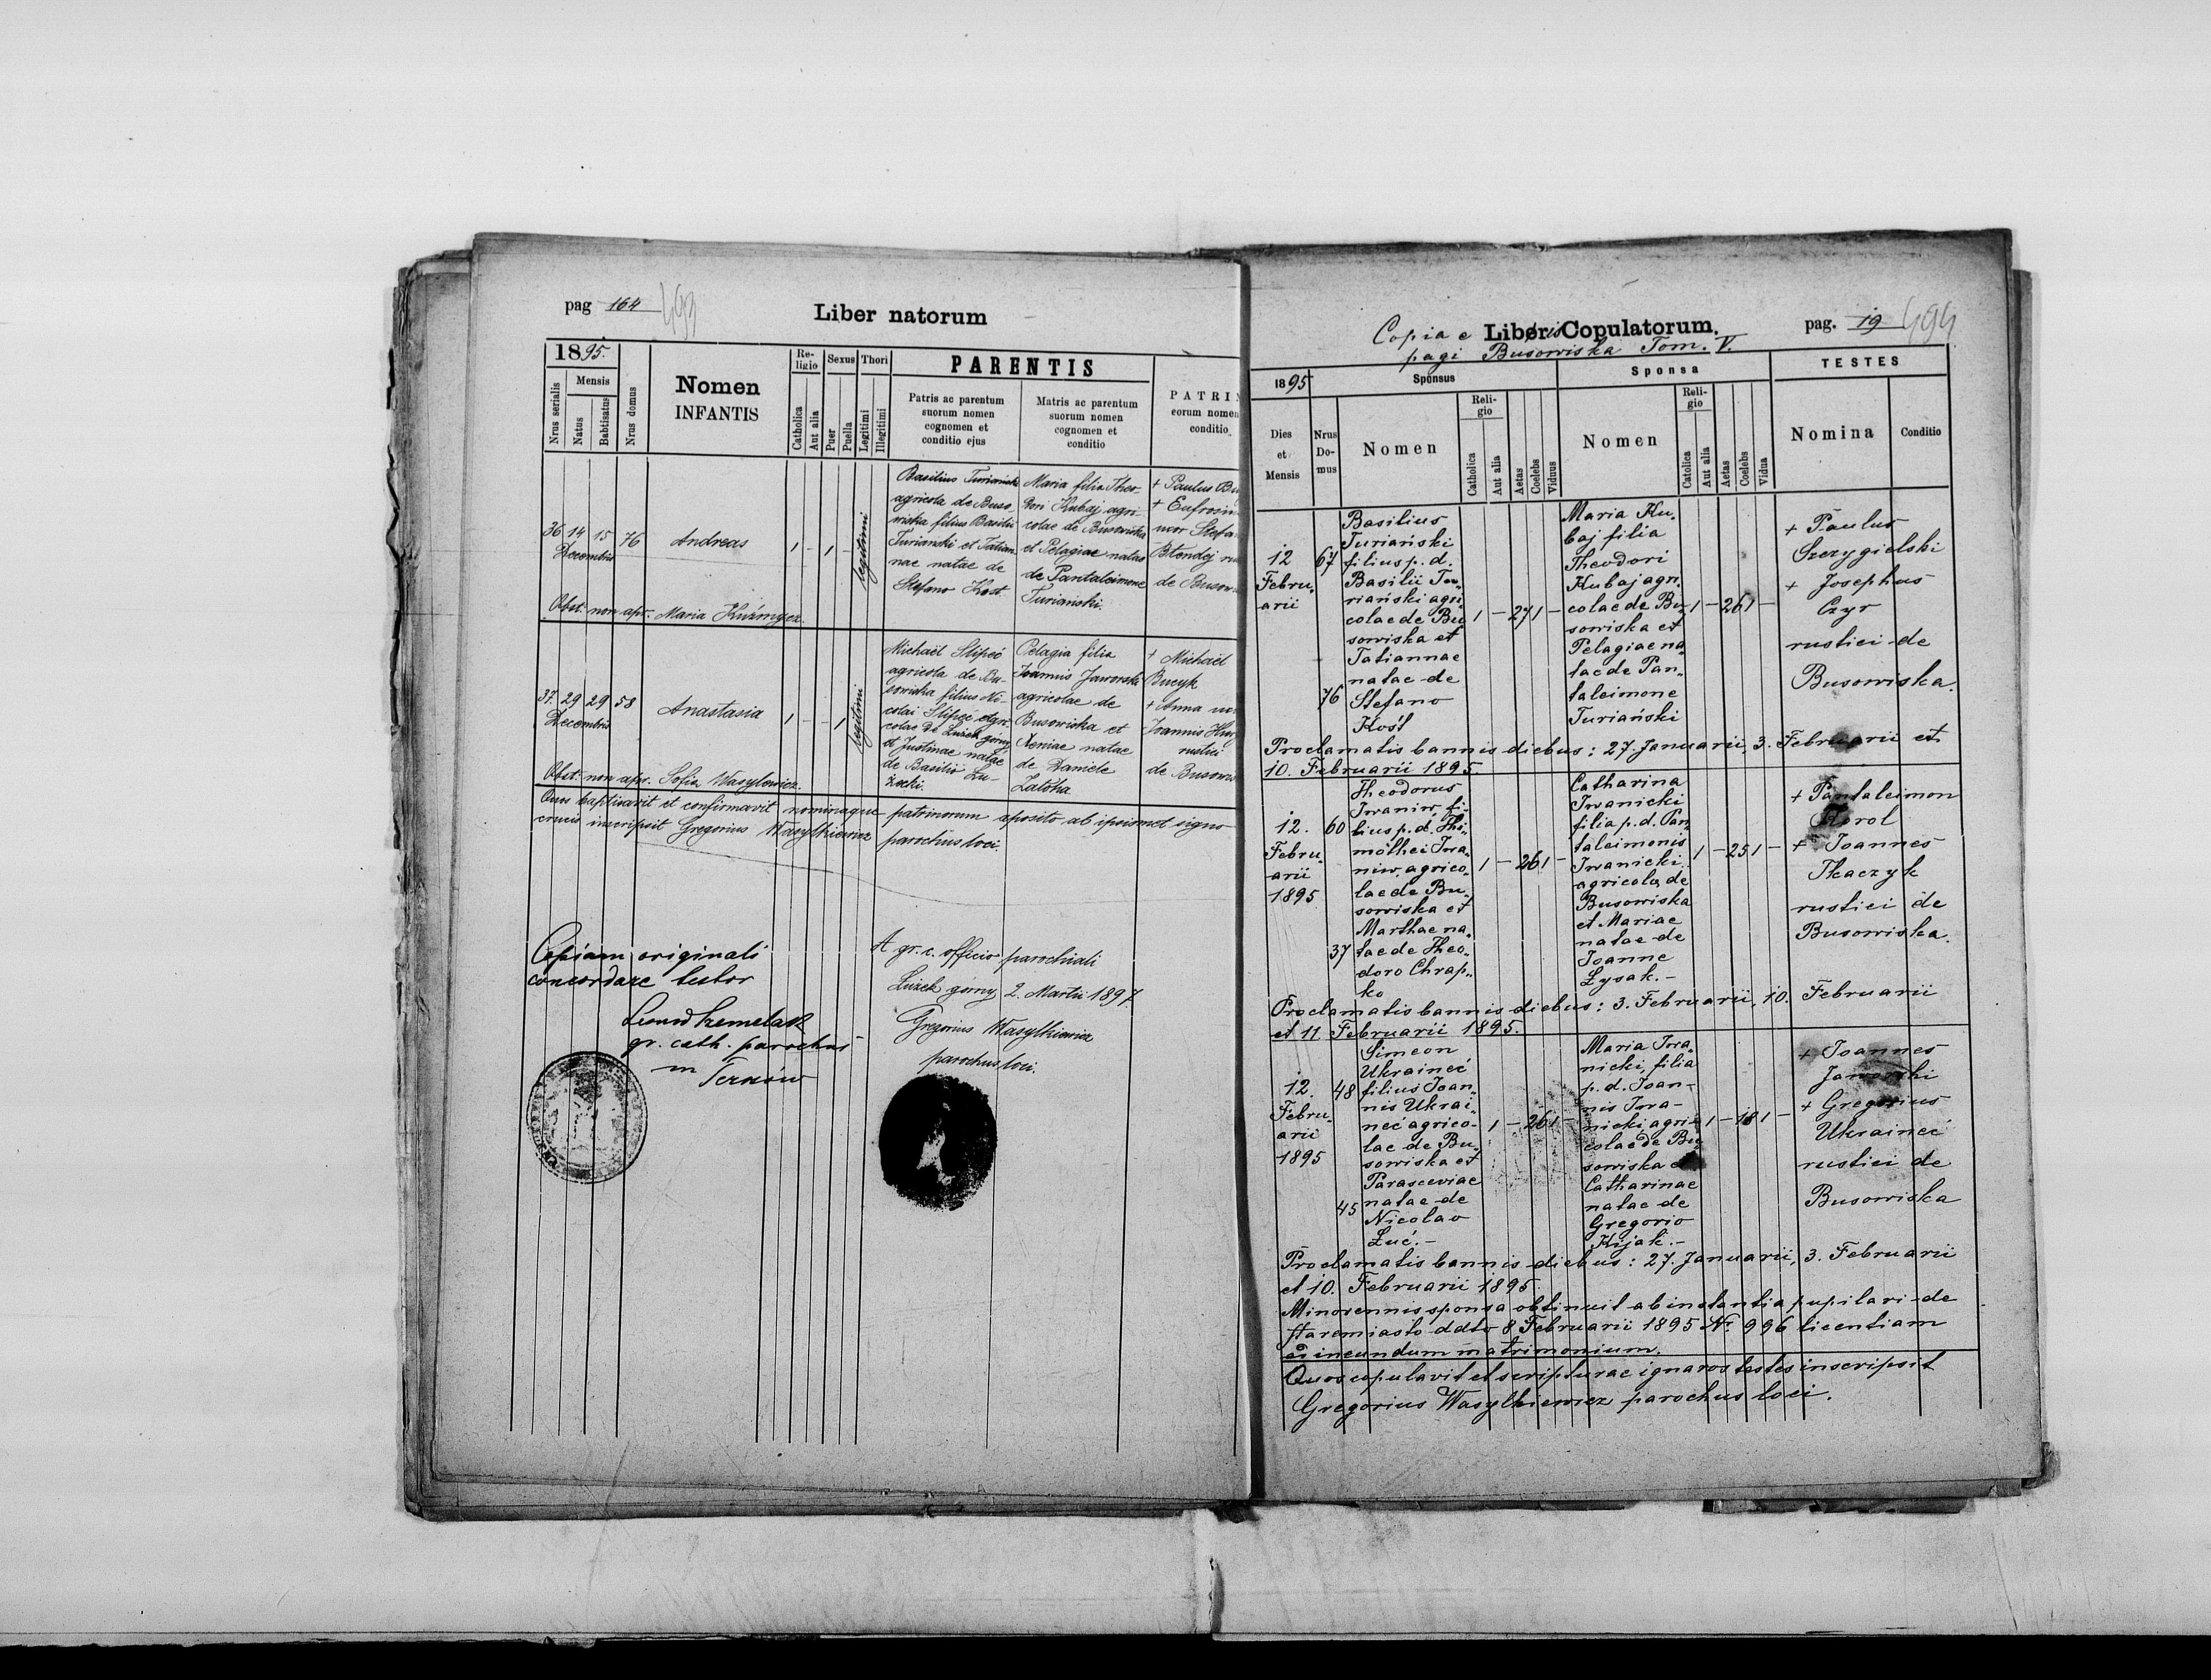 pag 164 493
Liber natorum
1895.
Nrus serialis
Mensis
Natus
Babtisatus
Nrus domus
Nomen
INFANTIS
Religio
Catholica
Aut alia
Sexus
Puer
Puella
Thori
Legitimi
Illegitimi
PARENTIS
Patris ac parentum
suorum nomen
cognomen et
conditio ejus
Matris ac parentum
suorum nomen
cognomen et
conditio
PATRIN
eorum nomen
conditio
36 14 15 76
Decembris
Andreas
1 - 1 -
legitimi
Basilius Turianski
agricola de Buso-
wiska filius Basilii
Turianski et Tatian-
nae natae de
Stefano Kost
Maria filia Theo-
dori Kubaj agri-
colae de Busowiska
et Pelagiae natae
de Pantaleimone
Turianski.
+ Paulus
+ Eufrosin
uxor Stefa
de Busow
Obst. non apr. Maria
37. 29 29 58
Decembris
Anastasia
1 - - 1
legitimi
Michaël Slipeć
agricola de Bu-
sowiska filius Ni-
colai Slipeć agri-
colae de Łużek górny
et Justinae natae
de Basilio Łu-
żecki.
Pelagia filia
Joannis Jaworski
agricolae de
Busowiska et
Xeniae natae
de Daniele
Zatoka
+ Michaël
Bucyk
+ Anna
Joannis
rustici
de Busowis
Obst. non apr. Sofia Wasylewicz.
Quos baptisavit et confirmavit nominaque patrinorum aposito ab ipsismet signo
crucis inscripsit Gregorius Wasylkiewicz parochus loci.
Copiam originali
concordare testor
gr. cath. parochus
in Terszów
A gr. c. officio parochiali
Łużek górny 2. Martii 1897
Gregorius Wasylkiewicz
parochus loci.
Copia e Libris Copulatorum.
pag. 19 494
pagi Busowiska Tom. V.
1895
Dies
et
Mensis
Nrus
Do-
mus
Sponsus
Nomen
Reli-
gio
Catholica
Aut alia
Aetas
Coelebs
Viduus
Sponsa
Nomen
Reli-
gio
Catolica
Aut alia
Aetas
Coelebs
Vidua
TESTES
Nomina
Conditio
12
Febru-
arii
67
76
Basilius
Turiański
filius p. d.
Basilii Tu-
riański agri-
colae de Bu-
sowiska et
Tatiannae
natae de
Stefano
Kost
1 - 27 1 -
Maria Ku-
baj filia
Theodori
Kubaj agri-
colae de Bu-
sowiska et
Pelagiae na-
tae de Pan-
taleimone
Turiański
1 - 26 1 -
+ Paulus
Szczygielski
+ Josephus
Czyr
rustici de
Busowiska.
Proclamatis bannis diebus: 27. Januarii, 3. Februarii et
10. Februarii 1895.
12.
Febru-
arii
1895
60
37
Theodorus
Iwaniw, fi-
lius p. d. Thi-
mothei Iwa-
niw, agrico-
lae de Bu-
sowiska et
Marthae na-
tae de Theo-
doro Chrap-
ko
1 - 26 1 -
Catharina
Iwanicki
filia p. d. Pan-
taleimonis
Iwanicki
agricolae de
Busowiska
et Mariae
natae de
Joanne
Łysak. -
1 - 25 1 -
+ Pantaleimon
Korol
+ Joannes
Tkaczyk
rustici de
Busowiska.
Proclamatis bannis diebus: 3. Februarii, 10. Februarii
et 11. Februarii 1895.
12.
Febru-
arii
1895
48
45
Simeon
Ukraineć
filius Joan-
nis Ukrai-
neć agrico-
lae de Bu-
sowiska et
Parasceviae
natae de
Nicolao
Łuć. -
1 - 26 1 -
Maria Iwa-
nicki, filia
p. d. Joan-
nis Iwa-
nicki, agri-
colae de Bu-
sowiska et
Catharinae
natae de
Gregorio
Kijak. -
1 - 18 1 -
+ Joannes
Jaworski
+ Gregorius
Ukraineć
rustici de
Busowiska
Proclamatis bannis diebus: 27. Januarii, 3. Februarii
et 10. Februarii 1895.
Minorennis sponsa obtinuit ab instantia pupilari de
Staremiasto ddto 8 Februarii 1895 Nr. 996 licentiam
ad ineundum matrimonium.
Quos copulavit et scripturae ignaros testes inscripsit
Gregorius Wasylkiewicz parochus loci.